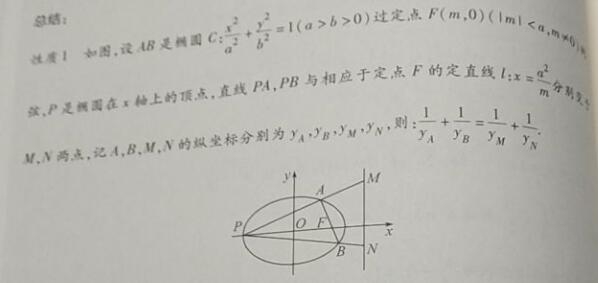 总结：
性质1 如图，设AB是椭圆C:x²/a²+y²/b²=1(a>b>0)过定点F(m,0)(|m|<a,m≠0)
弦，P是椭圆在x轴上的顶点，直线PA,PB与相应于定点F的定直线l:x=a²/m分别交于
M,N两点，记A,B,M,N的纵坐标分别为y_A,y_B,y_M,y_N，则：1/y_A+1/y_B=1/y_M+1/y_N.
y
A
M
P
O
F
x
B
N